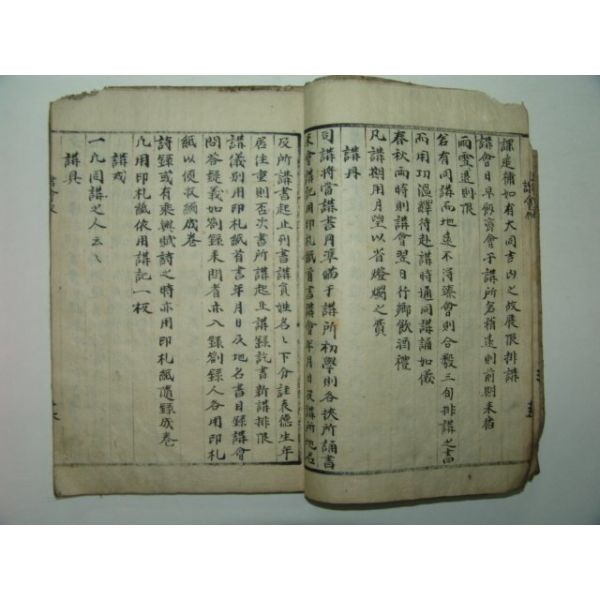 課定補如有大同吉凶之故展限排講
講會日早飯齊會于講所若稍遠則前期來宿
雨雪退則限
若有同講而地遠不得臻會則合數三旬排講之書
而用功溫繹待赴講時通同講誦如儀
春秋兩時則講會翌日行鄉飲酒禮
凡講期用月望以省燈燭之費
講丹
司講將當講書月準 于講所初學則各挾所誦書
來會講記用印札紙首書講會年月日及講所地名
及所講書起止列書講員姓名名下分註表德生年
居住重則否次書所講起止講錄訖書新講排限
講儀別用印札紙首書年月日及地名書目錄講會
問答疑義如劄錄來問者亦入錄劄錄人各用印札
紙以便收綴成卷
詩錄或有乘興賦詩之時亦用印札紙隨錄成卷
凡用印札紙依用講記一板
講戒
一凡同講之人云云
講具